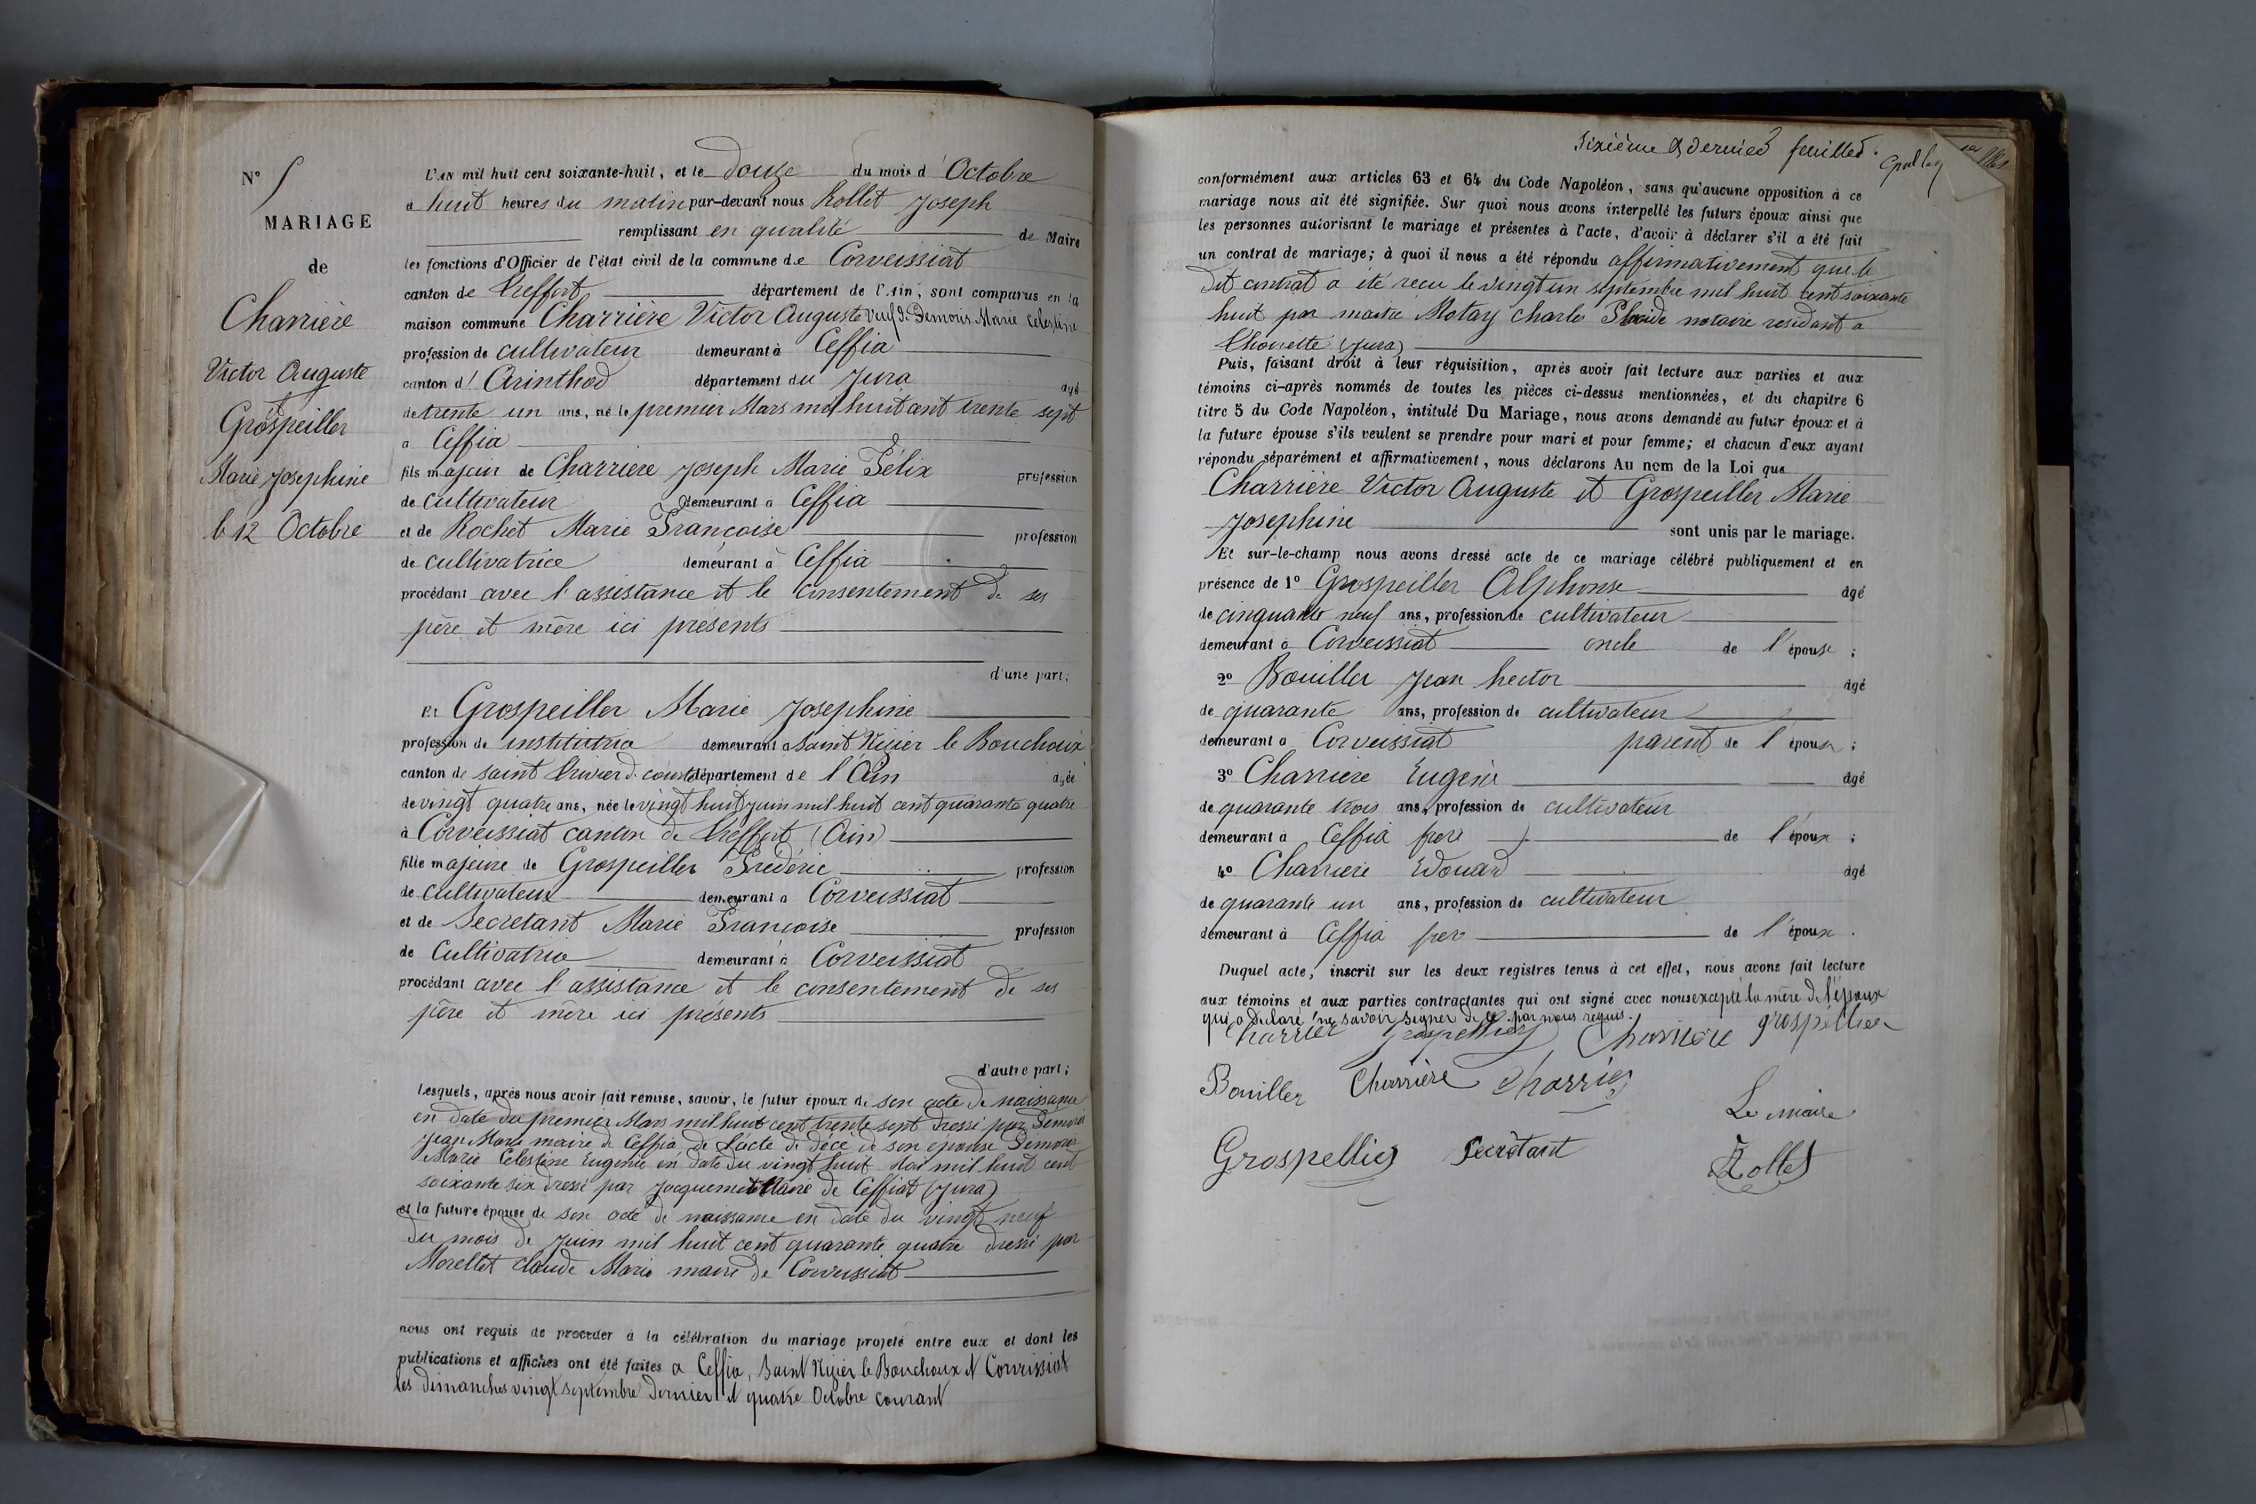 N° 5
MARIAGE
de
Charrière
Victor Auguste
et
Grospeiller
Marie Josephine
le 12 Octobre
L'AN mil huit cent soixante-huit, et le douze du mois d'Octobre
à huit heures du matin par-devant nous Rollet Joseph
remplissant en qualité de Maire
les fonctions d'Officier de l'état civil de la commune de Corveissiat
canton de Treffort département de l'Ain, sont comparus en la
maison commune Charrière Victor Auguste veuf de Demoris Marie Celestine
profession de cultivateur demeurant à Ceffia
canton d'Arinthod département du Jura agé
de trente un ans, né le premier Mars mil huit cent trente sept
à Ceffia
fils majeur de Charriere Joseph Marie Félix profession
de cultivateur demeurant à Ceffia
et de Rochet Marie Françoise profession
de cultivatrice demeurant à Ceffia
procédant avec l'assistance et le consentement de ses
père et mère ici presents
d'une part;
Et Grospeiller Marie Josephine
profession de institutrice demeurant à Saint Nizier le Bouchoux
canton de saint Trivier de courtes département de l'Ain agée
de vingt quatre ans, née le vingt huit juin mil huit cent quarante quatre
à Corveissiat canton de Treffort (Ain)
fille majeure de Grospeiller Frédéric profession
de cultivateur demeurant à Corveissiat
et de Secretant Marie Françoise profession
de Cultivatrice demeurant à Corveissiat
procédant avec l'assistance et le consentement de ses
père et mère ici présents
d'autre part;
Lesquels, après nous avoir fait remise, savoir, le futur époux de son acte de naissance
en date du premier Mars mil huit cent trente sept dressé par
Jean Marie maire de Ceffia, de l'acte de déce de son epouse
Marie Celestine Eugenie en date du vingt huit Mai mil huit cent
soixante six dressé par Jacquemet Maire de Ceffiat (Jura)
et la future épouse de son acte de naissance en date du vingt neuf
du mois de Juin mil huit cent quarante quatre dressé par
Morellet Claude Marie maire de Corveissiat
nous ont requis de procéder à la célébration du mariage projeté entre eux et dont les
publications et affiches ont été faites à Ceffia, Saint Nizier le Bouchoux et Corveissiat
les dimanches vingt septembre dernier et quatre Octobre courant
Sixième & dernier feuillet.
conformément aux articles 63 et 64 du Code Napoléon, sans qu'aucune opposition à ce
mariage nous ait été signifiée. Sur quoi nous avons interpellé les futurs époux ainsi que
les personnes autorisant le mariage et présentes à l'acte, d'avoir à déclarer s'il a été fait
un contrat de mariage; à quoi il nous a été répondu affirmativement que le
dit contrat a été reçu le vingt un septembre mil huit cent soixante
huit par maitre Motay Charles Placide notaire residant a
Thoirette (Jura)
Puis, faisant droit à leur réquisition, après avoir fait lecture aux parties et aux
témoins ci-après nommés de toutes les pièces ci-dessus mentionnées, et du chapitre 6
titre 5 du Code Napoléon, intitulé Du Mariage, nous avons demandé au futur époux et à
la future épouse s'ils veulent se prendre pour mari et pour femme; et chacun d'eux ayant
répondu séparément et affirmativement, nous déclarons Au nom de la Loi que
Charrière Victor Auguste et Grospeiller Marie
Josephine sont unis par le mariage.
Et sur-le-champ nous avons dressé acte de ce mariage célébré publiquement et en
présence de 1° Grospeiller Alphonse agé
de cinquante neuf ans, profession de cultivateur
demeurant à Corveissiat oncle de l'épouse;
2° Bouiller Jean hector agé
de quarante ans, profession de cultivateur
demeurant à Corveissiat parent de l'épouse;
3° Charriere Eugène agé
de quarante trois ans, profession de cultivateur
demeurant à Ceffia frere de l'époux;
4° Charriere Edouard agé
de quarante un ans, profession de cultivateur
demeurant à Ceffia frere de l'époux.
Duquel acte, inscrit sur les deux registres tenus à cet effet, nous avons fait lecture
aux témoins et aux parties contractantes qui ont signé avec nous excepté la mère de l'époux
qui a déclaré ne savoir signer de ce par nous requis.
Charrier Grospellier Charriere grospellier
Bouiller Charrière Charrier
Le maire
Grospellier Secrétant Rollet